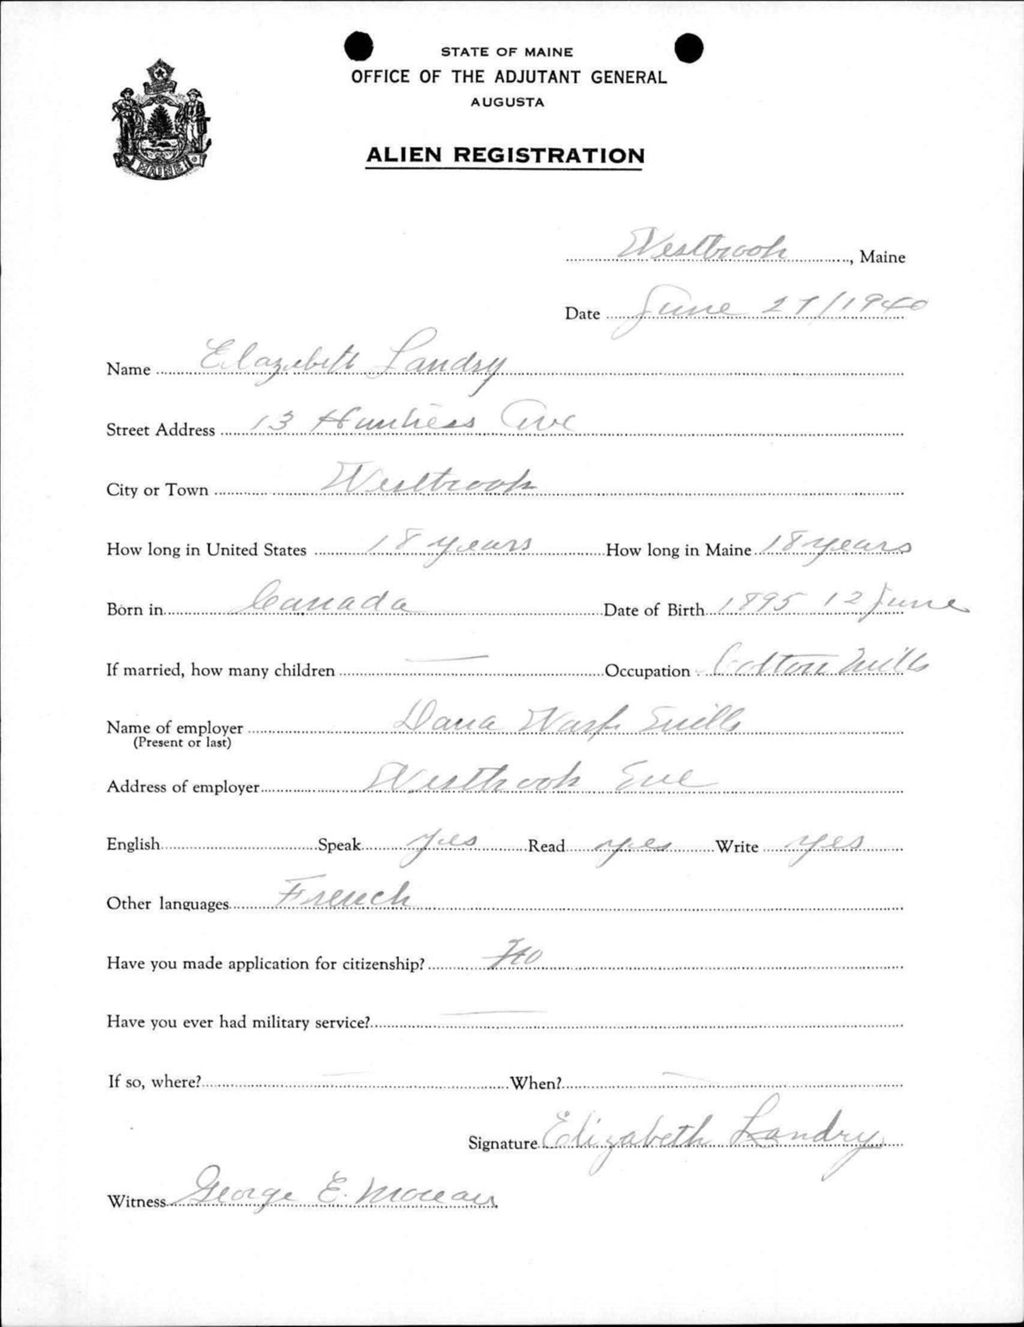 STATE OF MAINE
OFFICE OF THE ADJUTANT GENERAL
AUGUSTA
ALIEN REGISTRATION
MAINE
Westbrook, Maine
Date June 27/1940
Name Elazebeth Landry
Street Address 13 Ave
City or Town Westbrook
How long in United States 18 years How long in Maine 18 years
Born in Canada Date of Birth 1895 12 June
If married, how many children — Occupation Cotton Mills
Name of employer Dana Warp Mills
(Present or last)
Address of employer Westbrook
English Speak yes Read yes Write yes
Other languages French
Have you made application for citizenship? No
Have you ever had military service? —
If so, where? — When? —
Signature Elizabeth Landry
Witness George E.